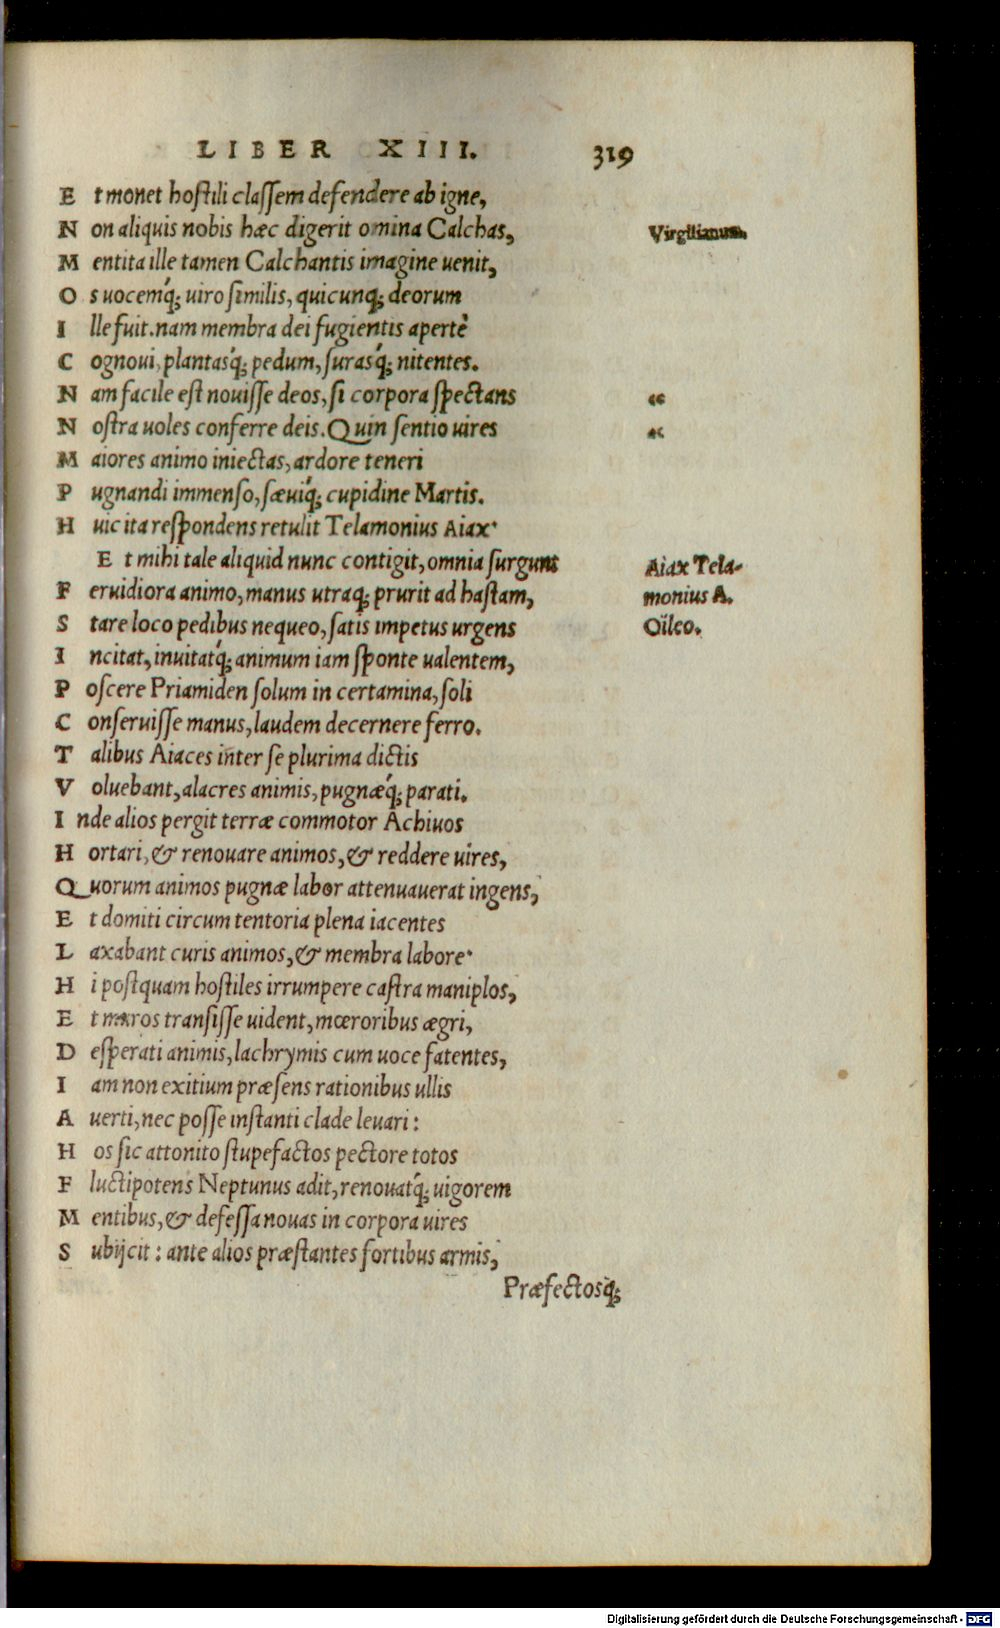 LIBER XIII. 319
Et monet hostili classem defendere ab igne,
Non aliquis nobis hæc digerit omina Calchas, Virgilianum.
Mentita ille tamen Calchantis imagine uenit,
Os uocemq́; uiro similis, quicunq; deorum
Ille fuit. nam membra dei fugientis apertè
Cognoui, plantasq́; pedum, surasq́; nitentes.
Nam facile est nouisse deos, si corpora spectans "
Nostra uoles conferre deis. Quin sentio uires "
Maiores animo iniectas, ardore teneri
Pugnandi immenso, sæuiq́; cupidine Martis.
Huic ita respondens retulit Telamonius Aiax.
Et mihi tale aliquid nunc contigit, omnia surgunt Aiax Tela-
Feruidiora animo, manus utraq; prurit ad hastam, monius A.
Stare loco pedibus nequeo, satis impetus urgens Oïleo.
Incitat, inuitatq́; animum iam sponte ualentem,
Poscere Priamiden solum in certamina, soli
Conseruisse manus, laudem decernere ferro.
Talibus Aiaces inter se plurima dictis
Voluebant, alacres animis, pugnæq́; parati.
Inde alios pergit terræ commotor Achiuos
Hortari, & renouare animos, & reddere uires,
Quorum animos pugnæ labor attenuauerat ingens,
Et domiti circum tentoria plena iacentes
Laxabant curis animos, & membra labore.
Hi postquam hostiles irrumpere castra maniplos,
Et muros transisse uident, mœroribus ægri,
Desperati animis, lachrymis cum uoce fatentes,
Iam non exitium præsens rationibus ullis
Auerti, nec posse instanti clade leuari:
Hos sic attonito stupefactos pectore totos
Fluctipotens Neptunus adit, renouatq́; uigorem
Mentibus, & defessa nouas in corpora uires
Subijcit: ante alios præstantes fortibus armis,
Præfectosq́;
Digitalisierung gefördert durch die Deutsche Forschungsgemeinschaft - DFG